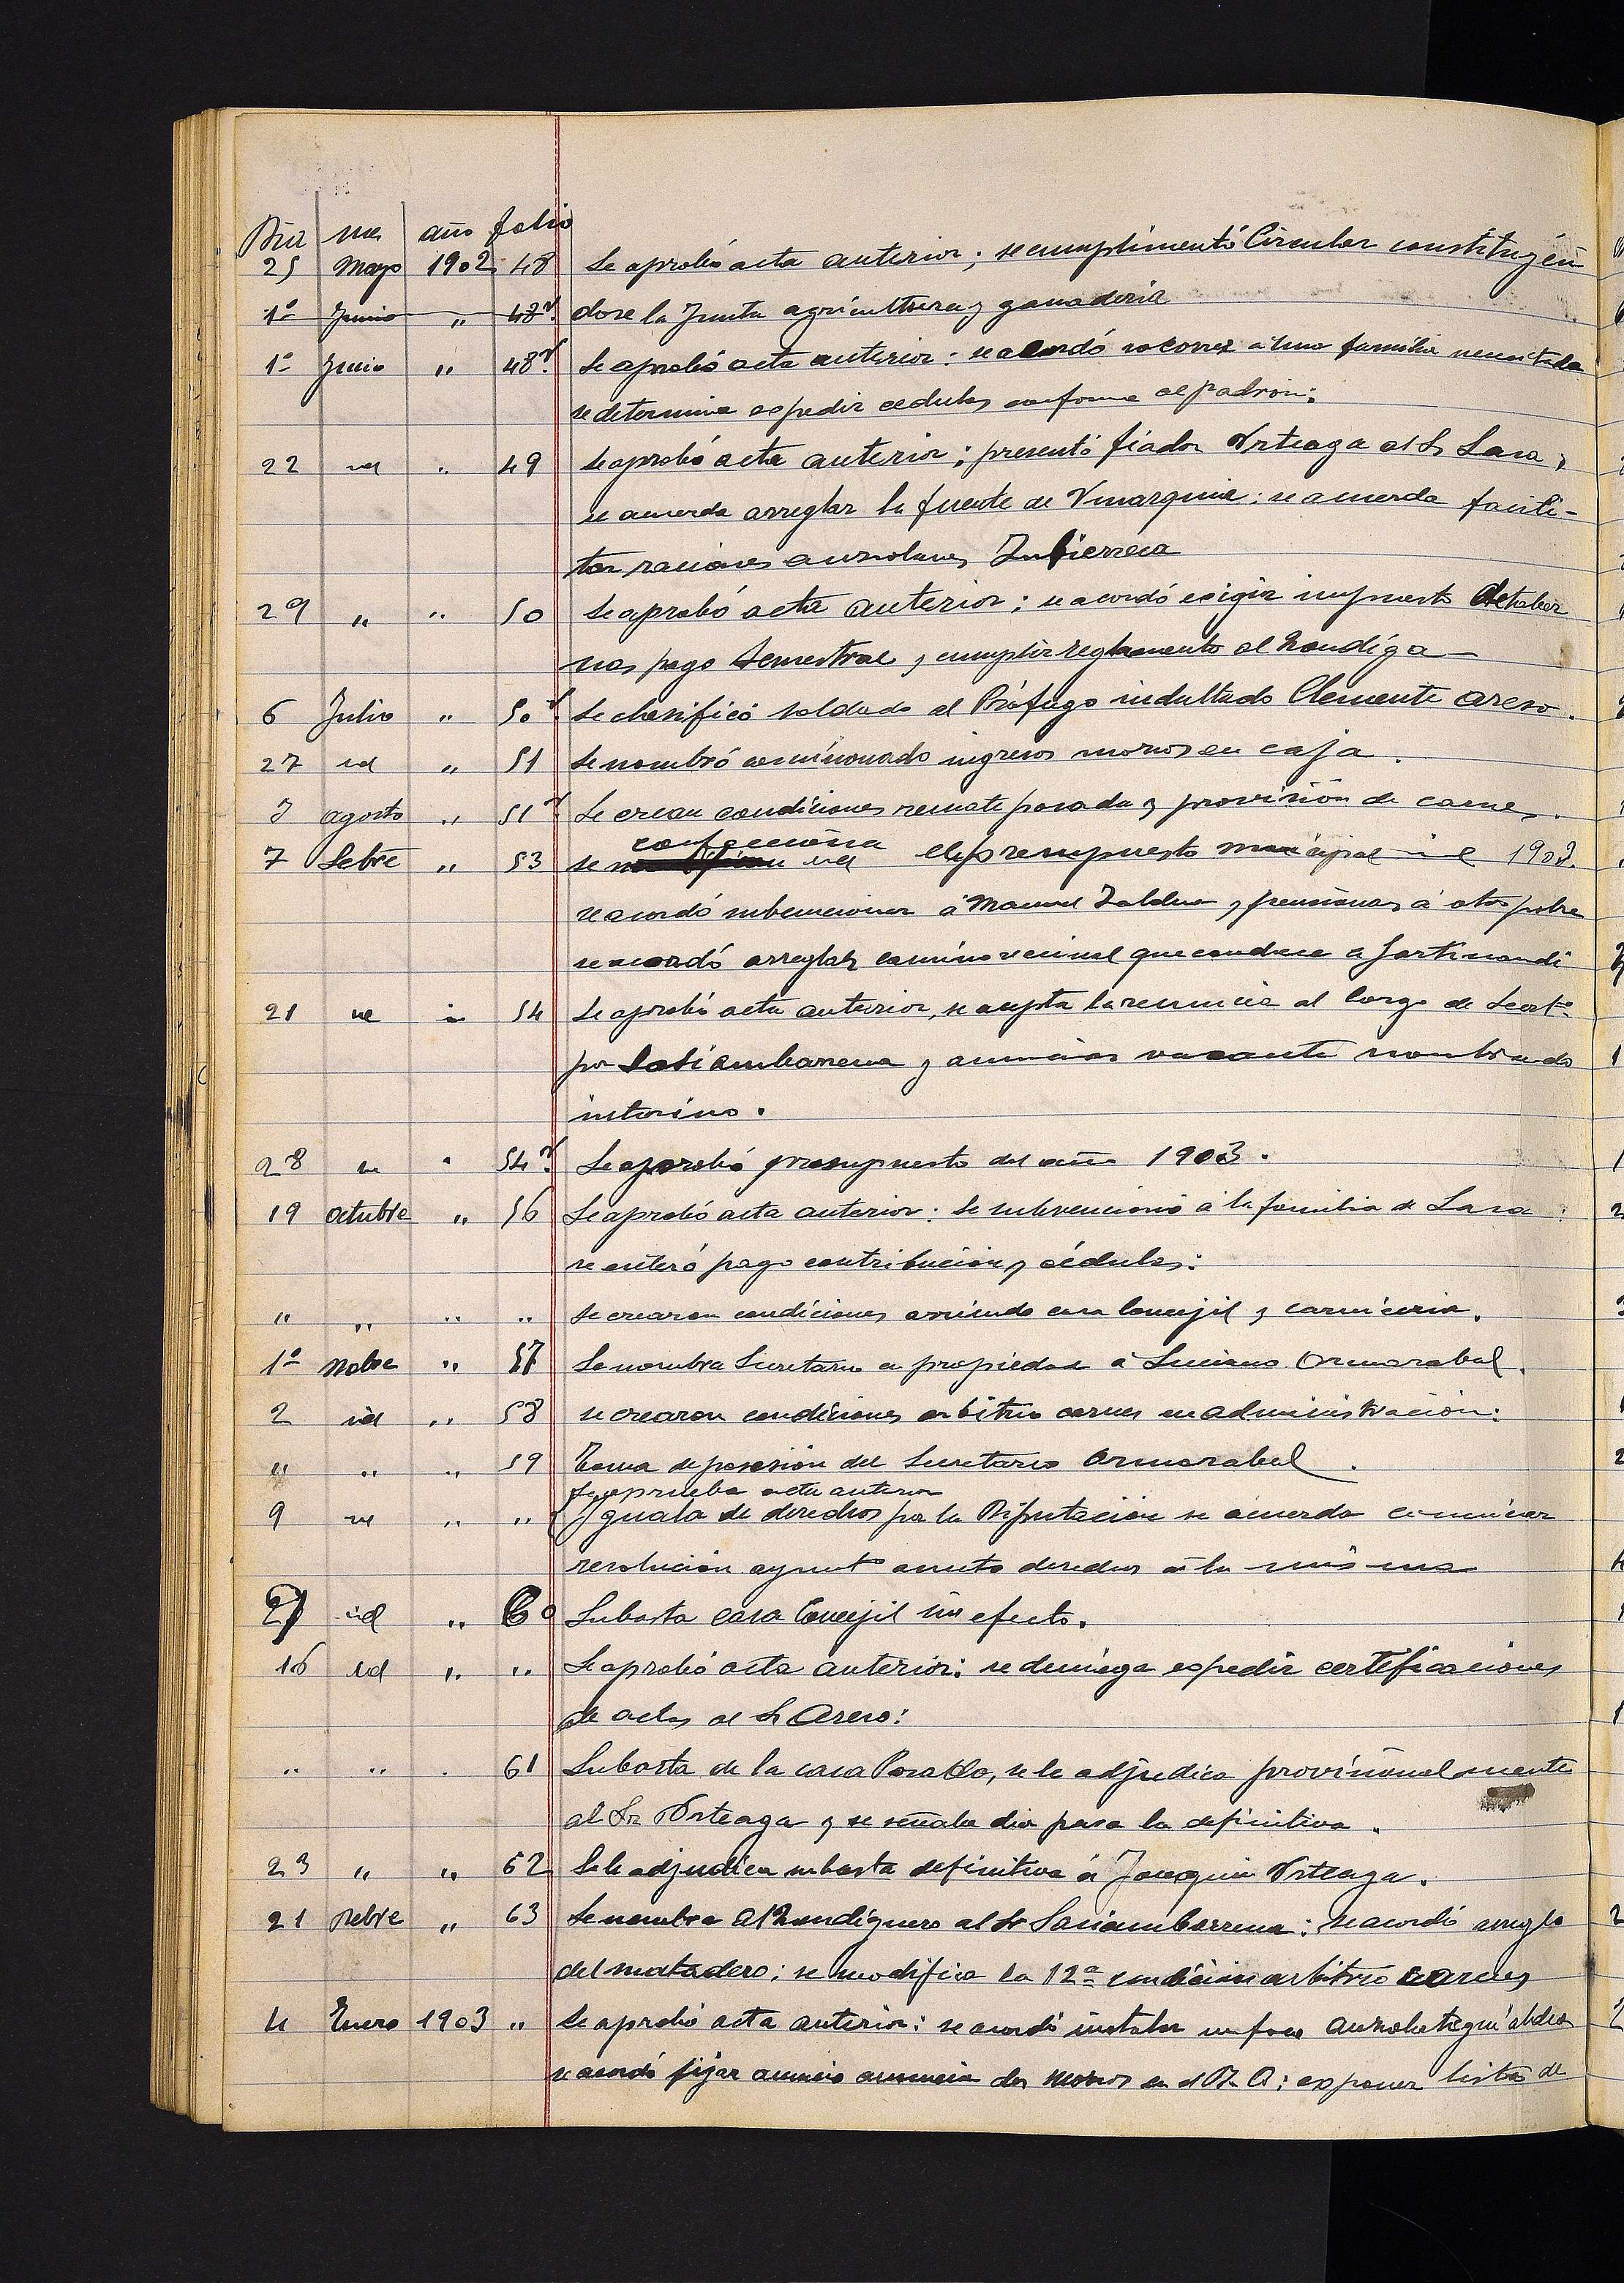 Dia mes año folio
25 Mayo 1902 48 Se aprobó acta anterior; se cumplimentó Circular constituyén
1º Junio " 48v. dose la Junta agricultura y ganaderia
1º Junio " 48v. Se aprobó acta anterior: se acordó socorrer á una familia necesitada
se determina expedir cedulas conforme al padron:
22 id " 49 Se aprobó acta anterior; presentó fiador Arteaga al Sr Lasa;
se acuerda arreglar la fuente de : se acuerda facili-
tar raciones
29 " " 50 Se aprobó acta anterior; se acordó exigir impuesto de taber
nas pago Semestral y cumplir reglamento alhondiga
6 Julio " 50v Se clasificó soldado al Prófugo indultado Clemente Areso.
27 id " 51 Se nombró comisionado ingresos mozos en caja.
3 agosto " 51v Se crean condiciones remate posada y provisión de carnes.
confecciona
7 Sebre " 53 se el presupuesto municipal 1903.
se acordó subvencionar á Manuel Zaldua y pensionar á otro pobre
se acordó arreglar camino vecinal que conduce a
21 id " 54 Se aprobó acta anterior, se acepta la renuncia al cargo de Secrt.º
por Sasiambarrena y anunciar vacante nombrando
interino.
28 id " 54v. Se aprobó presupuesto del año 1903.
19 octubre " 56 Se aprobó acta anterior: Se subvencionó á la familia de Lasa:
se enteró pago contribución y cédulas:
" " " " Se crearon condiciones arriendo casa Concejil y carniceria.
1º Nobre " 57 Se nombra Secretario en propiedad á Luciano Ormazabal.
2 id " 58 se crearon condiciones arbitrio carnes en administración:
" " " 59 Toma de posesión del Secretario Ormazabal.
Se aprueba acta anterior
9 id " " Iguala de derechos por la Diputación se acuerda comunicar
resolución aynt derechos á la misma
9 id " 60 Subasta casa Concejil sin efecto.
16 id " " Se aprobó acta anterior: se deniega expedir certificaciones
de actas al Sr Areso:
" " " 61 Subasta de la casa Posada, se le adjudica provisionalmente
al Sr Arteaga y se señala dia para la definitiva.
23 " " 62 Se le adjudica subasta definitiva á Joaquin Arteaga.
21 Debre " 63 Se nombra Alhondiguero al Sr Sasiambarrena: se acordó arreglo
del matadero: se modifica la 12ª condición arbitrio carnes
4 Enero 1903 " Se aprobó acta anterior: se acordó instalar un foco
se acordó fijar anuncio dos mozos en el B. O: exponer listas de